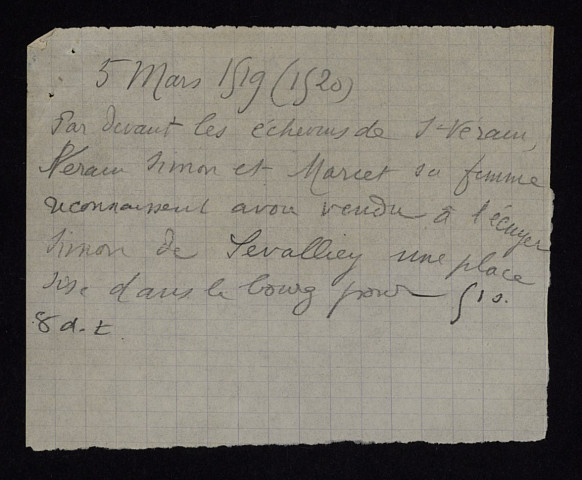 5 Mars 1519 (1520)
Par devant les échevins de St-Verain,
Verain Simon et Marcet sa femme
reconnaissent avoir vendu à l'écuyer
Simon de Sevalliey une place
sise dans le bourg pour
8 d. t